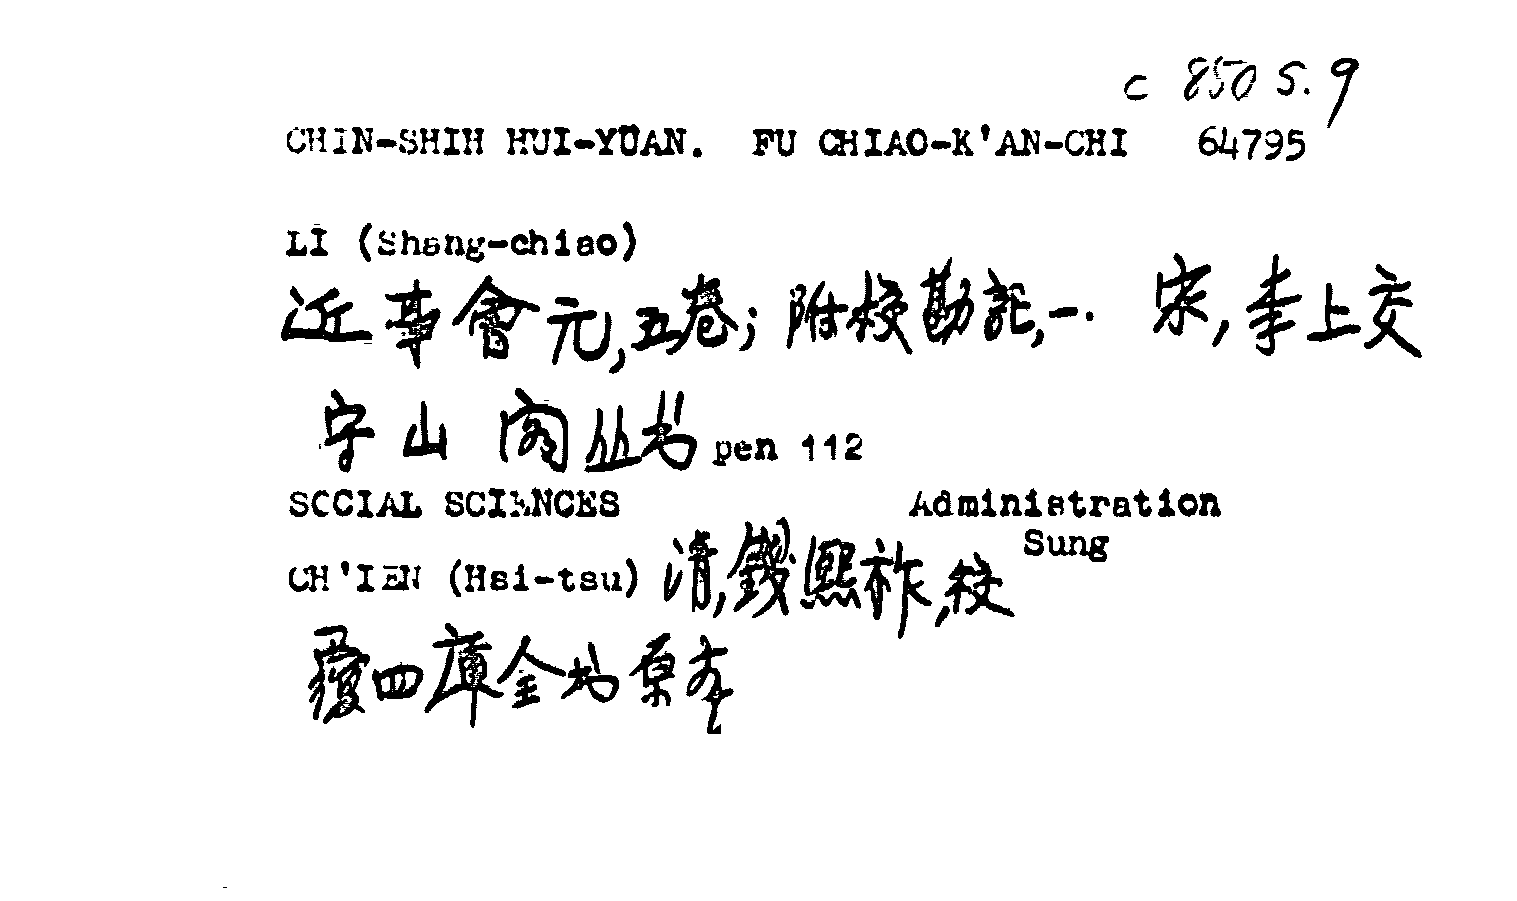 c 850 S. 9
CHIN-SHIH HUI-YÜAN. FU CHIAO-K'AN-CHI 64795
LI (Shang-chiao)
近事會元,五卷;附校勘記,一. 宋,李上交
守山阁丛书 pen 112
SOCIAL SCIENCES Administration
Sung
CH'IEN (Hsi-tsu) 清,錢熙祚,校
覆四庫全书原本